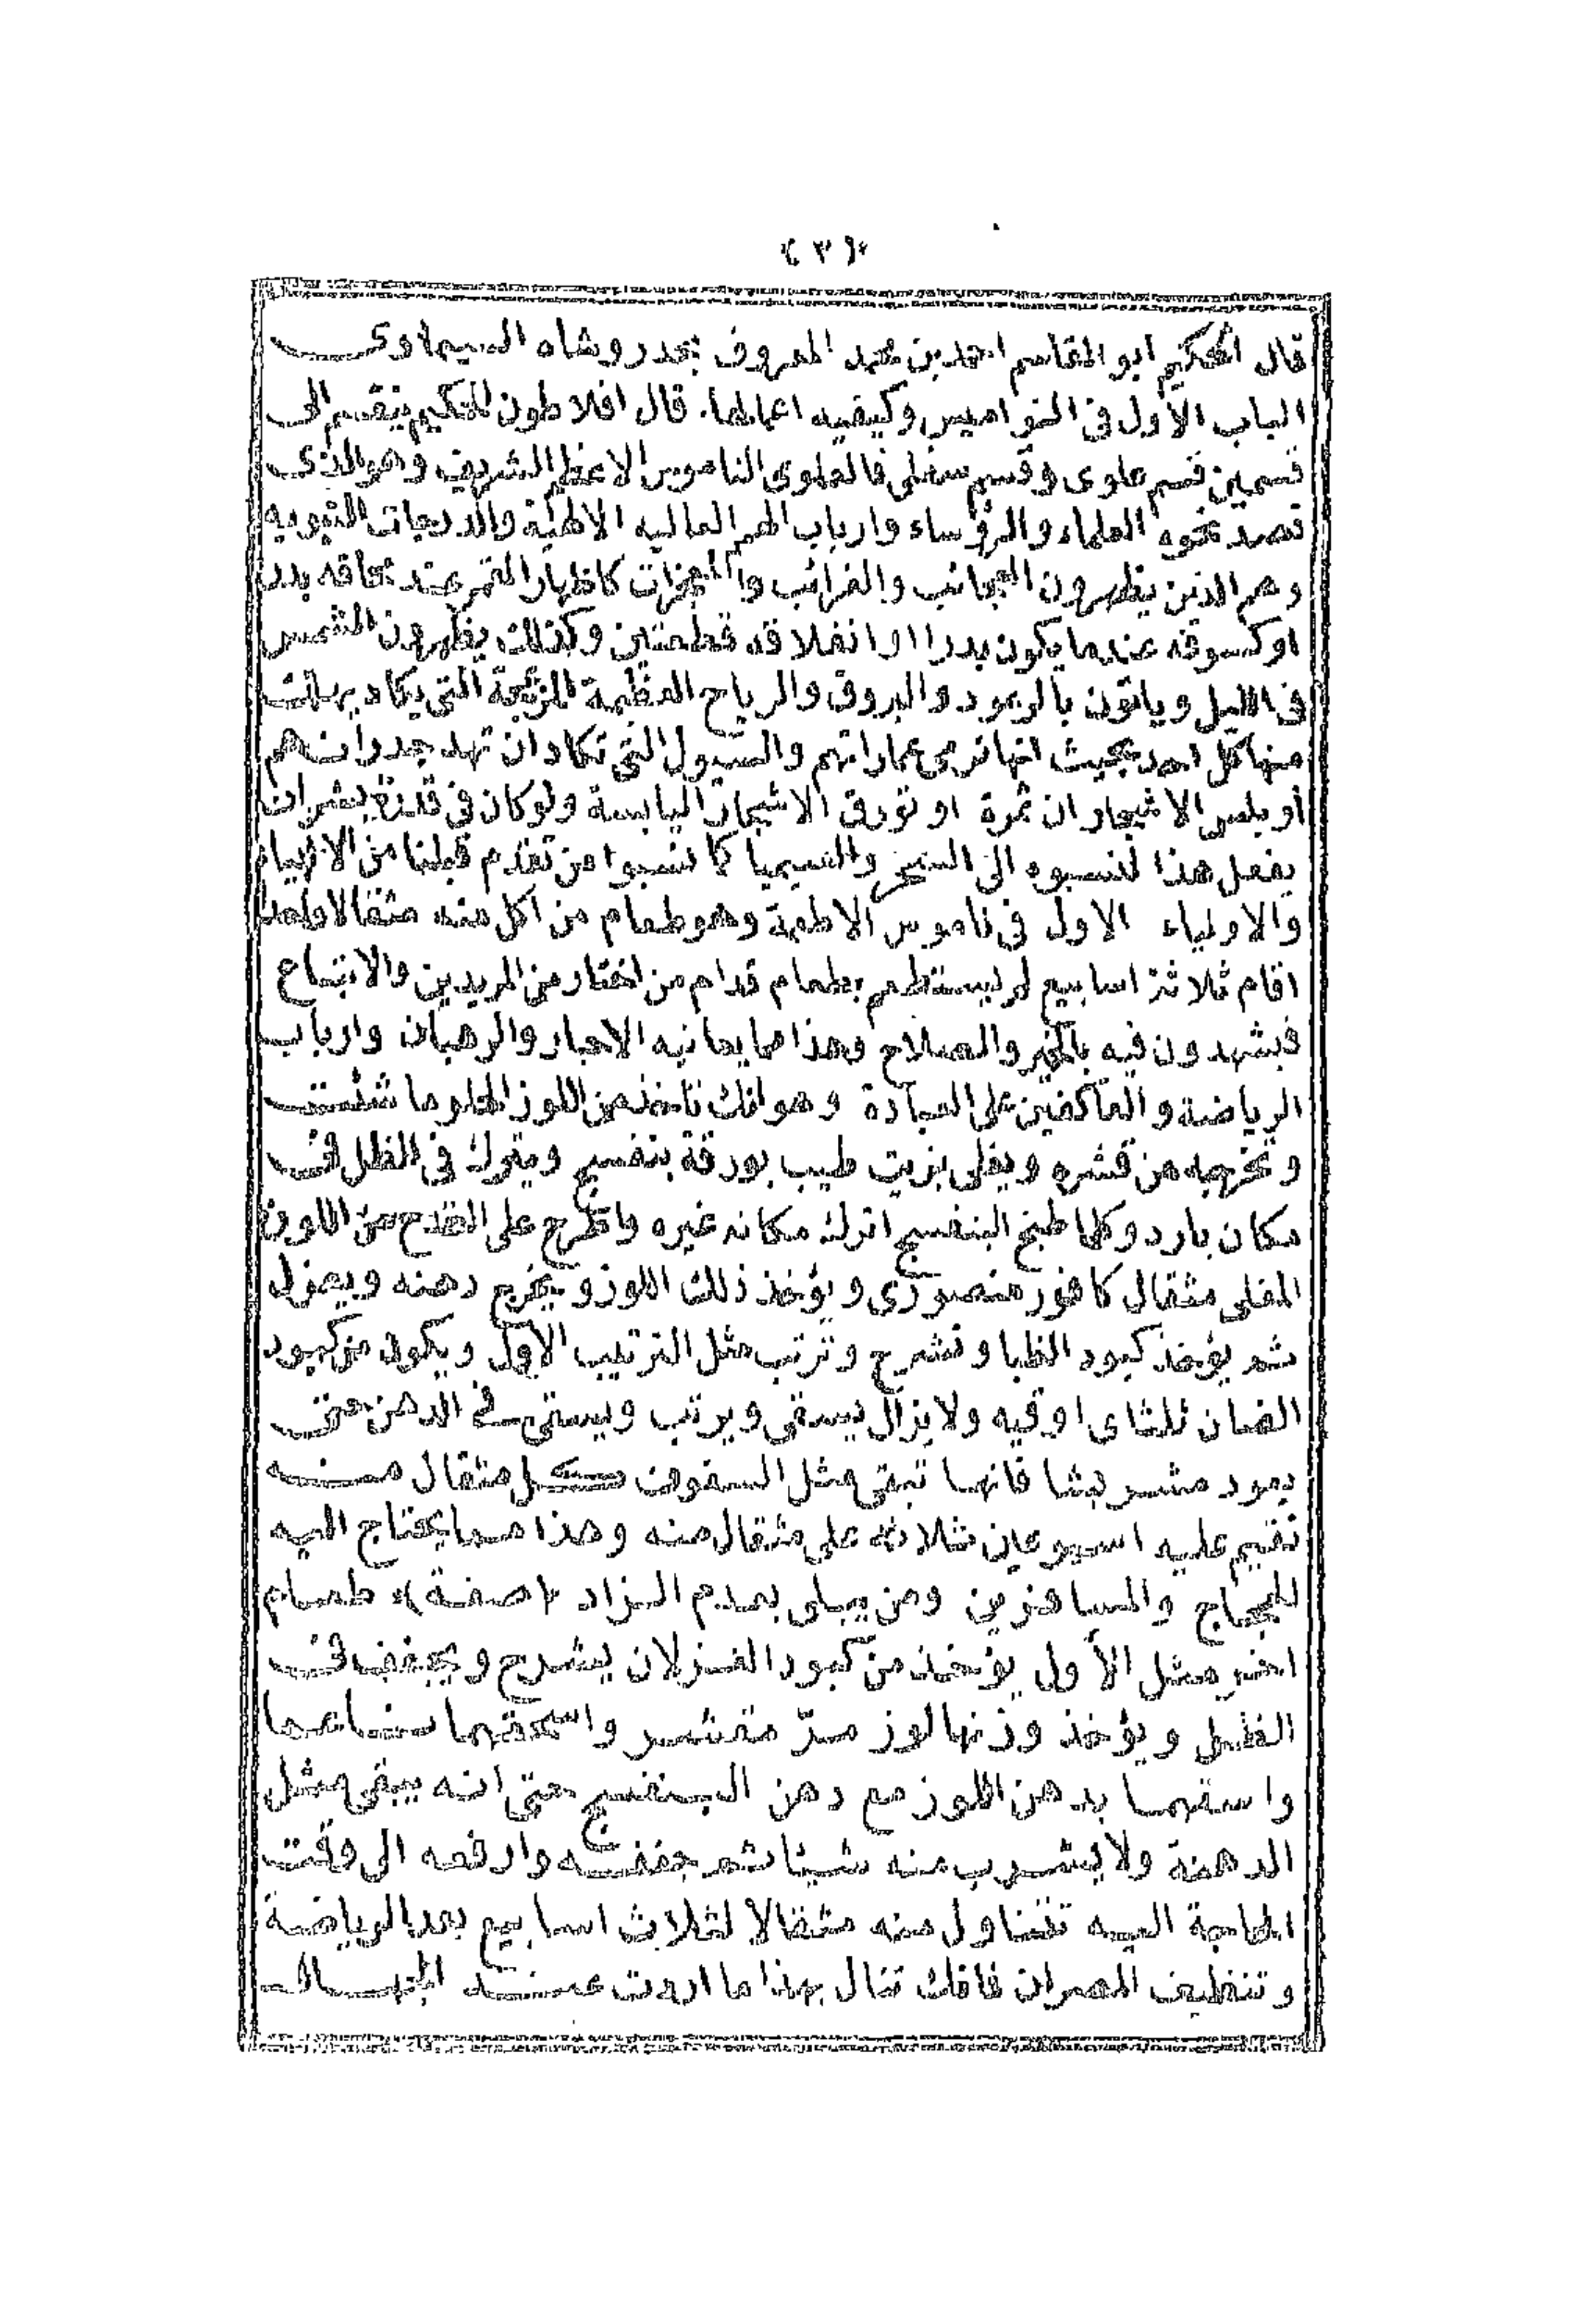 ﴿ ٣ ﴾
قال الحكيم ابو القاسم احمد بن محمد المعروف السيماوى
الباب الأول فى النواميس وكيفيه اعمالها. قال افلاطون الحكيم ينقسم الى
قسمين قسم علوى وقسم سفلى فالعلوى الناموس الاعظم الشريف وهو الذى
تصد نحوه العلماء والرؤساء وارباب الهمم العاليه الالهية والدرجات النبويه
وهم الذين يظهرون العجائب والغرائب والمعجزات كاظهار القمر عند محاقه بدر
اوكسوفه عندما يكون بدرا او انفلاقه قطعتين وكذلك يظهرون الشمس
فى الليل وياتون بالرعود والبروق والرياح العظيمة المزعجة التى يكاد يهلك
منها كل احد بحيث انها ترمى عماراتهم والسيول التى تكاد ان تهد جدرانهم
أو يلمس الاشجار ان ثمرة او تورق الاشجار اليابسة ولوكان فى قدرة بشران
يفعل هذا لنسبوه الى السحر والسيميا كما نسبوا من تقدم قبلنا من الانبياء
والاولياء الاول فى ناموس الاطعمة وهو طعام من اكل منه مثقالا واحدا
اقام ثلاثة اسابيع لم يستطعم بطعام قدام من اختار من المريدين والاتباع
فيشهدون فيه بالخير والصلاح وهذا مما يعانيه الاحبار والرهبان وارباب
الرياضة والعاكفين على العبادة وهو انك تاخذ من اللوز الحلو ما شئت
وتخرجه من قشره ويغلى بزيت طيب بورقة بنفسج ويترك فى الظل فى
مكان بارد وكلما طبخ البنفسج اترك مكانه غيره واطرح على القدح من اللوز
المغلى مثقال كافور منصورى ويؤخذ ذلك اللوز ويخرج دهنه ويعزل
ثم يؤخذ كبود الظبا وتشرح وترتب مثل الترتيب الاول ويكون من كبود
الضان ثلثاى اوقيه ولا يزال يسقى ويرتب ويستقى فى الدهن حتى
يعود مشربشا فانها تبقى مثل السفوف كل مثقال منه
تقيم عليه اسبوعين ثلاثه على مثقال منه وهذا مما يحتاج اليه
للحجاج والمسافرين ومن يبلى بعدم الزاد ﴿صفة﴾ طعام
اخر مثل الأول يؤخذ من كبود الغزلان يشرح ويجفف فى
الظل ويؤخذ وزنها لوز مرّ مقشر واسحقهما ناعما
واسقهما بدهن اللوز مع دهن البنفسج حتى انه يبقى مثل
الدهنة ولا يشرب منه شيئا ثم جففه وارفعه الى وقت
الحاجة اليه تتناول منه مثقالا لثلاث اسابيع بعد الرياضة
وتنظيف المصران فانك تنال بهذا ما اردت عند الجهال